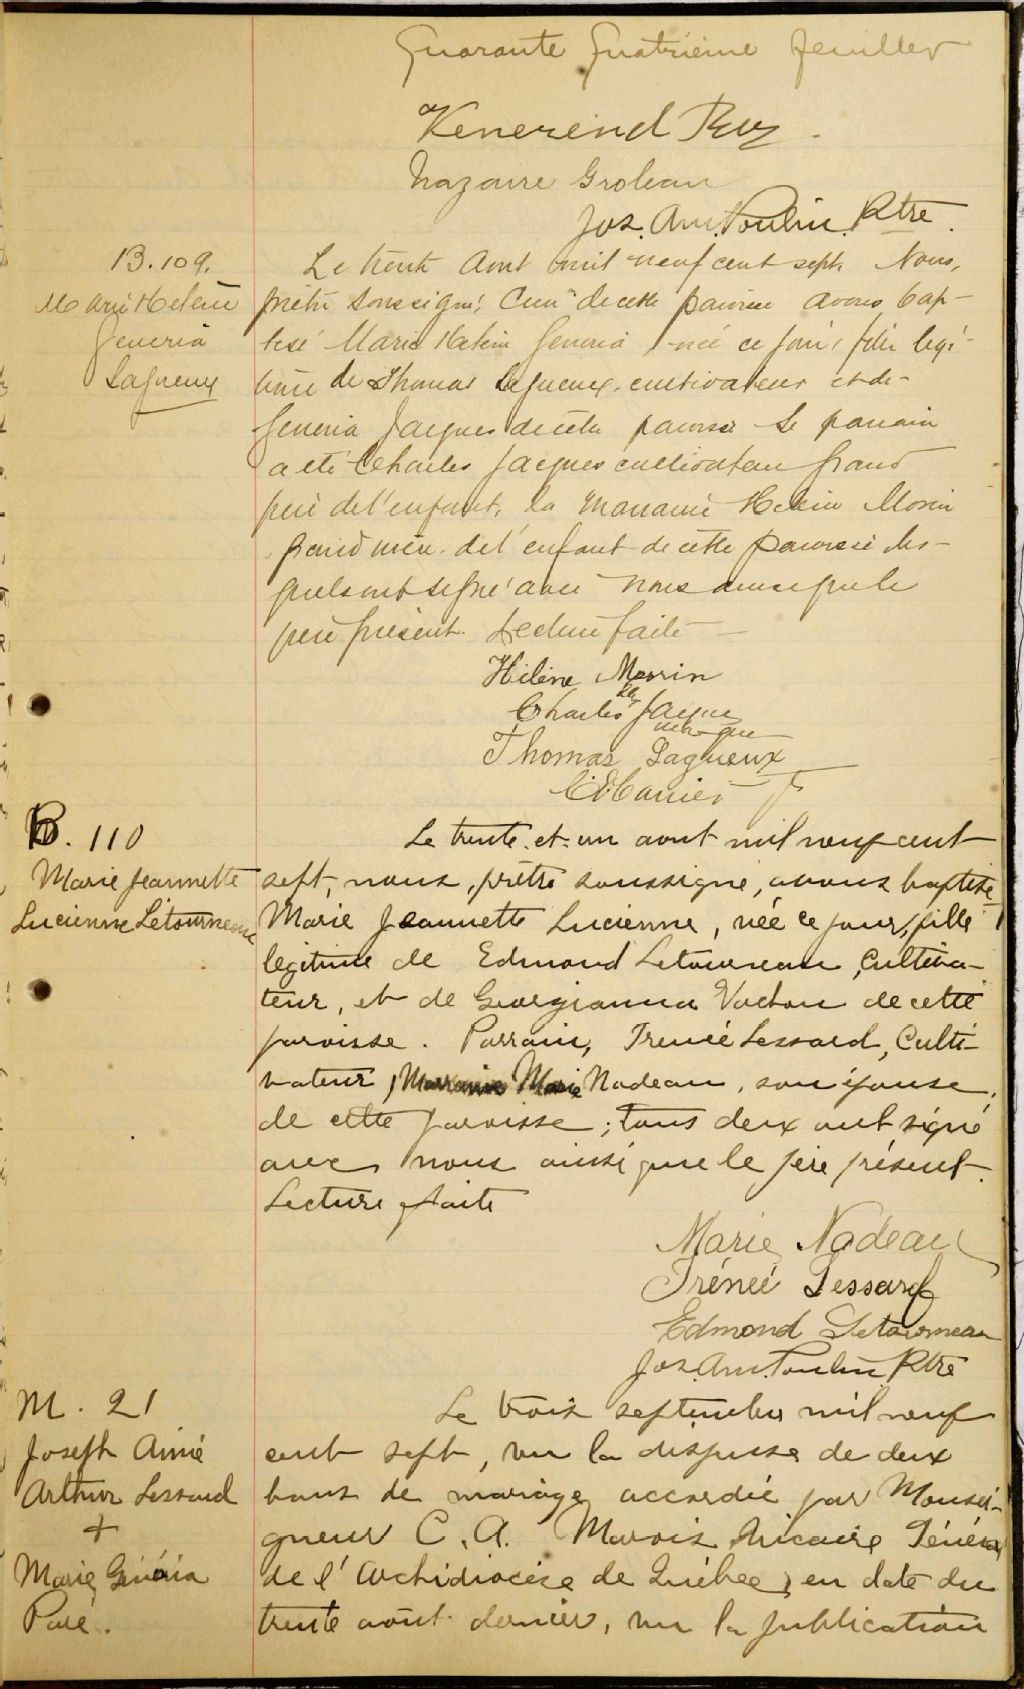 Quarante Quatrième feuillet
Venerend Roy
Nazaire Groleau
Jos. Am. Poulin Ptre.
B. 109.
Marie Helene
Generia
Lagueux
Le trente Aout mil neuf cent sept. Nous,
prêtre soussigné, Curé de cette paroisse avons bap-
tisé Marie Helene Generia née ce jour, fille légi-
time de Thomas Lagueux, cultivateur et de
Generia Jacques de cette paroisse Le parrain
a été Charles Jacques cultivateur grand
père de l'enfant, la marraine Helene Morin
grand mère de l'enfant de cette paroisse les-
quels ont signé avec nous ainsi que le
père présent. Lecture faite
Hilène Morin
Charles Jacque
Thomas Lagueux
B. 110
Marie Jeannette
Lucienne Létourneau
Le trente et un aout mil neuf cent
sept, nous, prêtre soussigné, avons baptisé
Marie Jeannette Lucienne, née ce jour, fille
légitime de Edmond Letourneau, Cultiva-
teur, et de Georgianna Vachon de cette
paroisse. Parrain, Irenée Lessard, Culti-
vateur, Marraine Marie Nadeau, son épouse,
de cette paroisse; tous deux ont signé
avec nous ainsi que le père présent.
Lecture faite
Marie Nadeau
Irénée Lessard
Edmond Letourneau
Jos. Am. Poulin Ptre
M. 21
Joseph Aimé
Arthur Lessard
+
Marie Généria
Paré.
Le trois septembre mil neuf
cent sept, vu la dispense de deux
bans de mariage accordée par Monsei-
gneur C. A. Marois Vicaire Général
de l'Archidiocèse de Québec, en date du
trente août dernier, vu la publication